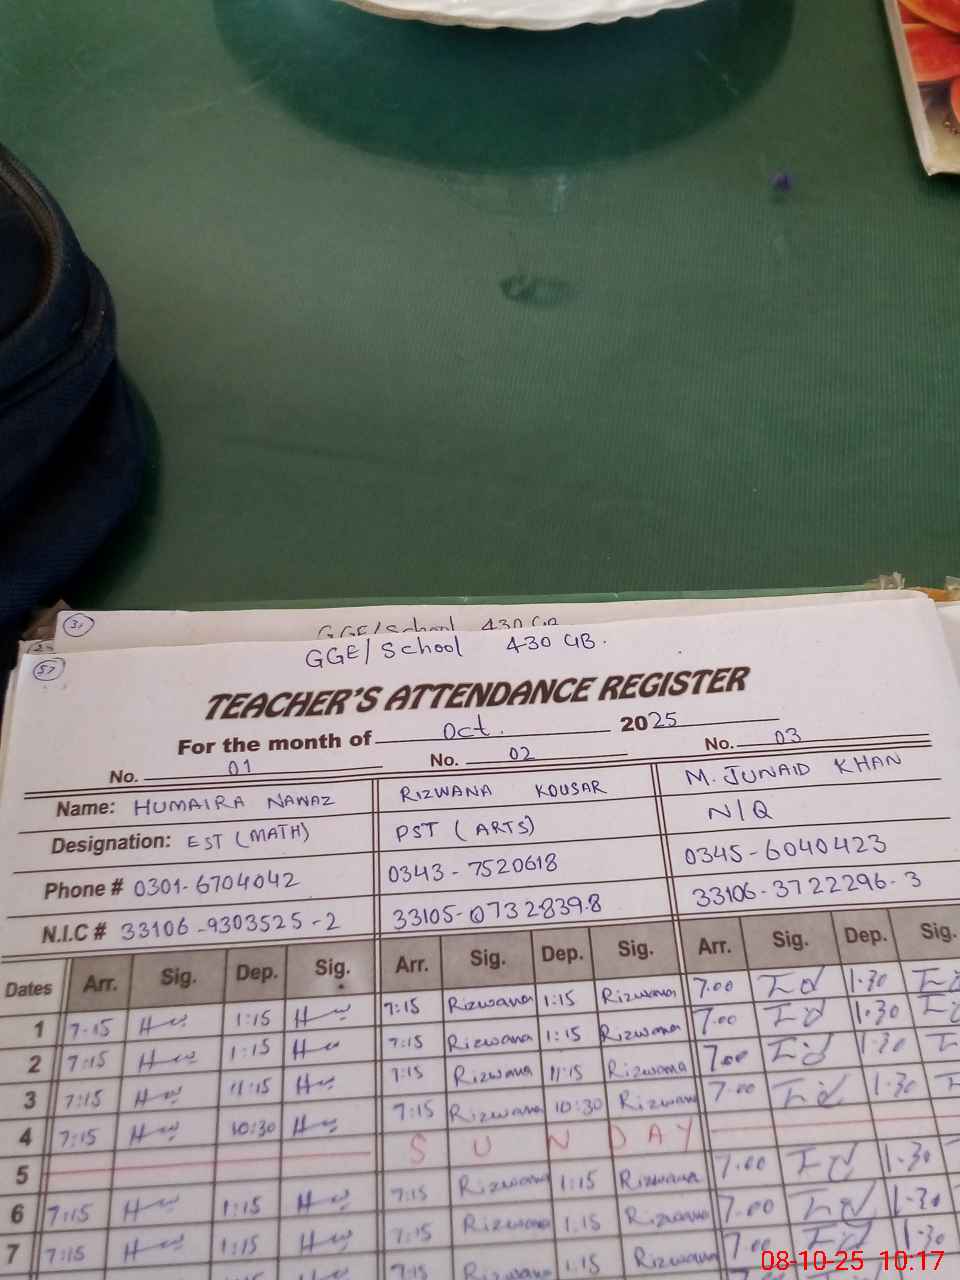 3,
GGE/School 430 GB
57
GGE/School 430 GB.
TEACHER'S ATTENDANCE REGISTER
For the month of Oct. 2025
No. 01 No. 02 No. 03
Name: HUMAIRA NAWAZ RIZWANA KOUSAR M. JUNAID KHAN
Designation: EST (MATH) PST (ARTS) N/Q
Phone # 0301-6704042 0343-7520618 0345-6040423
N.I.C # 33106-9303525-2 33105-0732839.8 33106-3722296-3
Dates Arr. Sig. Dep. Sig. Arr. Sig. Dep. Sig. Arr. Sig. Dep. Sig.
1 7-15 1:15 7:15 Rizwana 1:15 Rizwana 7.00 1.30
2 7:15 1:15 7:15 Rizwana 1:15 Rizwana 7.00 1.30
3 7:15 11:15 7:15 Rizwana 11:15 Rizwana 7.00 1.30
4 7:15 10:30 7:15 Rizwana 10:30 Rizwana 7.00 1.30
5 SUNDAY
6 7:15 1:15 7:15 Rizwana 1:15 Rizwana 7.00 1.30
7 7:15 1:15 7:15 Rizwana 1.15 Rizwana 7.00 1.30
7:15 Rizwana 1.15 Rizwana 7.00 1.30
08-10-25 10:17